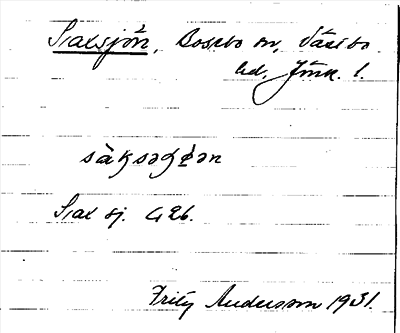 Saxsjön, Bosebo sn, Västbo
hd, Jönk. l.
Sax sj. GEb.
Fritz Andersson 1931.